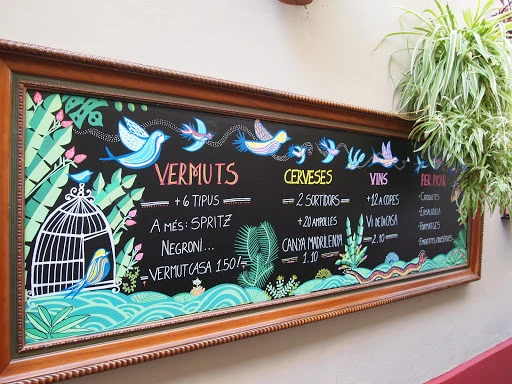 VERMUTS
+ 6 TIPUS
A MÉS: SPRITZ
NEGRONI...
VERMUT CASA 1.50
CERVESES
2 SORTIDORS
+20 AMPOLLES
CANYA MADRILENYA
1.10
VINS
+12 A COPES
VI DE LA CASA
2.10
PER PICAR
- CROQUETES
- ENSALADILLA
- FORMATGES